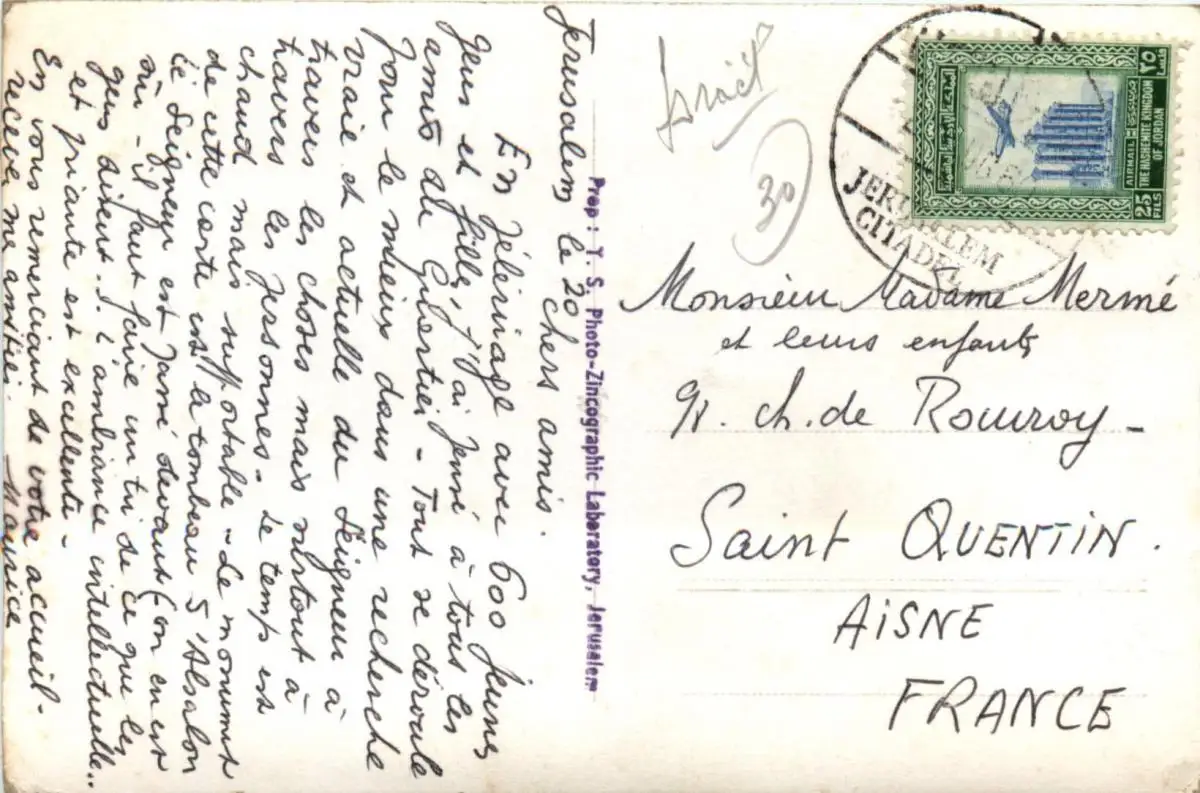 Jerusalem le 20
Chers amis.
En pèlerinage avec 600 jeunes
gens et filles, j'ai pensé à tous les
amis de Gibertier - Tout se déroule
pour le mieux dans une recherche
vraie et actuelle du Seigneur à
travers les choses mais surtout à
travers les personnes - Le temps est
chaud mais supportable - Le monument
de cette carte est le tombeau d'Absalon
le Seigneur est passé devant (on en est
sûr - il faut faire un tri de ce que les
gens disent.). L'ambiance intellectuelle..
et priante est excellente -
En vous remerciant de votre accueil -
recevez mes amitiés. Maurice
Prop : Y. S. Photo-Zincographic Laboratory, Jerusalem
Israël
30
AIRMAIL
THE HASHEMITE KINGDOM
OF JORDAN
25
FILS
٢٥
JERUSALEM
CITADEL
Monsieur Madame Mermé
et leurs enfants
91. ch. de Rouvroy -
Saint QUENTIN.
AiSNE
FRANCE